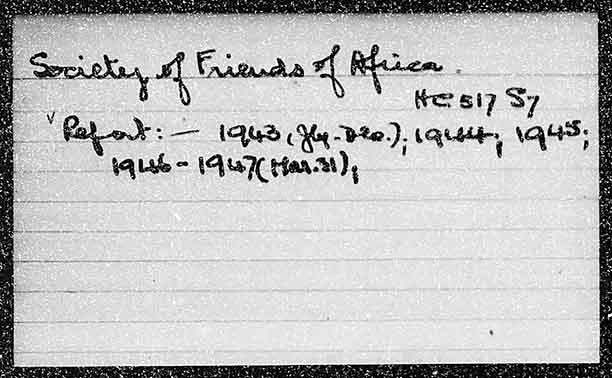 Society of Friends of Africa.
HC 517 S7
√ Report: — 1943, (Jly.-Dec.); 1944; 1945;
1946-1947(Mar.31);